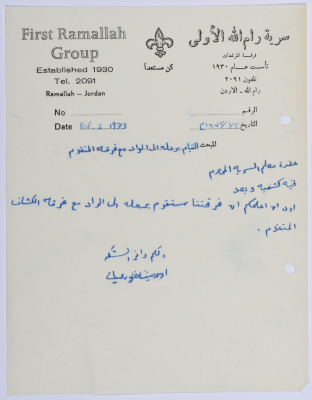 First Ramallah
Group
Established 1930
Tel. 2091
Ramallah – Jordan
سرية رام الله الأولى
فرقة المرشدات
تأسست عام ١٩٣٠
كن مستعداً
تلفون ٢٠٩١
رام الله – الأردن
No
الرقم
Date Feb. 2. 1973
التاريخ
المبحث القيام برحلة الى الواد مع فرقة المتقدم
حضرة معلم السرية المحترم
تحية كشفية وبعد
اود ان اعلمكم ان فرقتنا ستقوم برحلة الى الواد مع فرقة الكشاف
المتقدم .
ولكم وافر الشكر